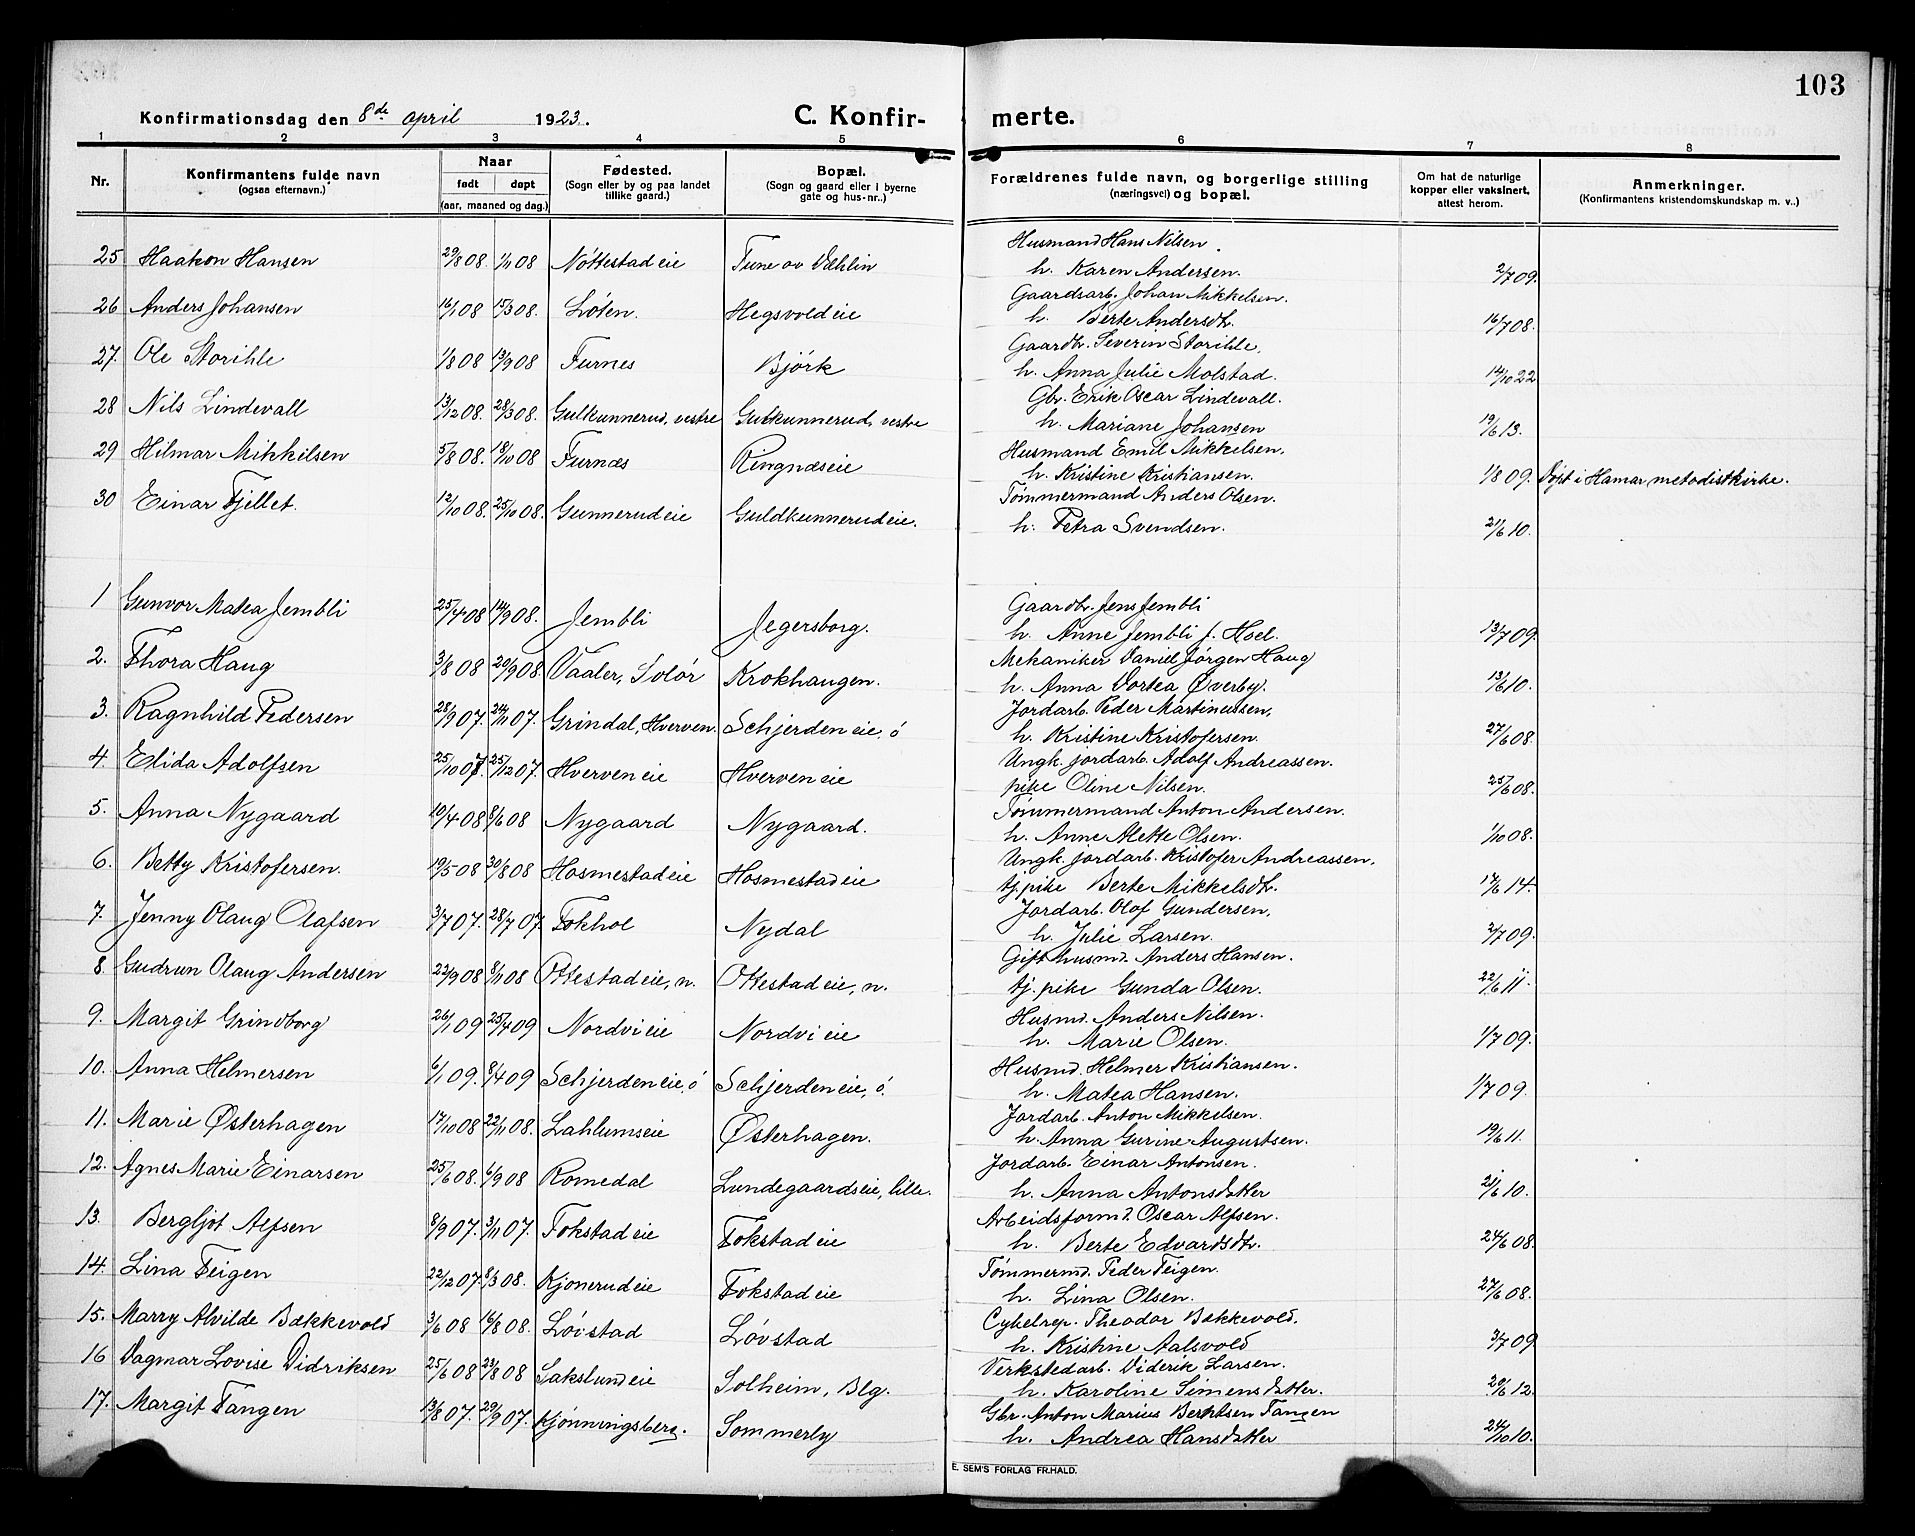 103
Konfirmationsdag den 8de april 1923. C. Konfir- merte.
1 2 3 4 5 6 7 8
Nr. Konfirmantens fulde navn (ogsaa efternavn.) Naar født døpt (aar, maaned og dag.) Fødested. (Sogn eller by og paa landet tillike gaard.) Bopæl. (Sogn og gaard eller i byerne gate og hus-nr..) Forældrenes fulde navn, og borgerlige stilling (næringsvei) og bopæl. Om hat de naturlige kopper eller vaksinert, attest herom. Anmerkninger. (Konfirmantens kristendomskundskap m. v..)
25 Haakon Hansen 29/8 08. 1/11 08 Nøttestadeie Tune av Væhlin Husmand Hans Nilsen.
h. Karen Andersen. 2/7 09.
26 Anders Johansen 16/1 08 15/3 08. Løten. Hegsvoldeie Gaardsarb. Johan Mikkelsen.
h. Berte Andersdtr. 16/7 08.
27. Ole Storihle 1/8 08 13/9 08 Furnes Bjørk Gaardbr. Severin Storihle,
h. Anna Julie Molstad. 14/10 22
28 Nils Lindevall 13/12 08. 28/3 08. Gulkunnerud, vestre Gulkunnerud, vestre Gbr. Erik Oscar Lindevall.
h. Mariane Johansen 19/6 13.
29 Hilmar Mikkelsen 5/8 08. 18/10 08 Furnæs Ringnæseie Husmand Emil Mikkelsen.
h. Kristine Kristiansen. 1/8 09. Døpt i Hamar metodistkirke.
30 Einar Fjellet. 12/10 08. 25/10 08. Gunnerudeie Guldkunnerudeie. Tømmermand Anders Olsen.
h. Petra Svendsen. 21/6 10.
1 Gunvor Matea Jembli 25/7 08 14/9 08. Jembli Jegersborg. Gaardbr. Jens Jembli
h. Anne Jembli f. Hoel. 13/7 09.
2. Thora Haug 3/8 08 20/9 08. Vaaler, Solør Krokhaugen. Mekaniker Daniel Jørgen Haug
h. Anna Dortea Øverby. 13/6 10.
3. Ragnhild Pedersen 28/9 07. 24/11 07. Grindal, Hverven. Schjerdeneie, ö Jordarb. Peder Martinussen,
h. Kristine Kristofersen. 27/6 08.
4. Elida Adolfsen 25/10 07. 25/12 07. Hverveneie Hverveneie Ungk. jordarb. Adolf Andreassen.
pike Oline Nilsen. 25/6 08.
5. Anna Nygaard 10/4 08 8/6 08 Nygaard Nygaard. Tømmermand Anton Andersen.
h. Anne Mette Olsen. 1/10 08.
6. Betty Kristofersen. 19/5 08 30/8 08 Hosmestadeie Hosmestadeie Ungk. jordarb. Kristofer Andreassen.
tj. pike Berte Mikkelsdtr. 17/6 14.
7. Jenny Olaug Olafsen 3/7 07. 28/7 07. Fokhol Nydal Jordarb. Olof Gundersen,
h. Julie Larsen. 2/7 09.
8 Gudrun Olaug Andersen 22/9 08 8/11 08 Ottestadeie, n. Ottestadeie, n. Gift husmd. Anders Hansen.
tj. pike Gunda Olsen. 22/6 11.
9. Margit Grindborg 26/1 09 25/4 09 Nordvieie Nordvieie Husmd. Anders Nilsen.
h. Marie Olsen. 1/7 09.
10. Anna Helmersen 6/1 09. 8/4 09 Schjerdeneie, ö Schjerdeneie, ö. Husmd. Helmer Kristiansen.
h. Matea Hansen. 1/7 09
11. Marie Østerhagen 17/10 08 22/11 08. Lahlumseie Østerhagen. Jordarb. Anton Mikkelsen.
h. Anna Gurine Augustsen. 19/6 11.
12. Agnes Marie Einarsen 25/6 08. 6/9 08 Romedal Lundegaardseie, lille. Jordarb. Einar Antonsen.
h. Anna Antonsdatter 21/6 10.
13. Bergljot Alfsen 8/9 07. 3/11 07. Fokstadeie Fokstadeie Arbeidsformd. Oscar Alfsen.
h. Berte Edvardsdtr. 24/6 08.
14. Lina Feigen 22/12 07. 8/3 08. Kjonerudeie Fokstadeie Tømmermd. Peder Feigen.
h. Lina Olsen. 27/6 08.
15. Marry Alvilde Bækkevold 3/6 08 16/8 08. Løvstad Løvstad Cykelrep. Theodor Bækkevold.
h. Kristine Aalsvold 3/7 09
16 Dagmar Lovise Didriksen 25/6 08 23/8 08 Sakslundeie Solheim, Blg. Verkstedarb. Diderik Larsen.
h. Karoline Simensdatter. 20/6 12.
17. Margit Tangen 13/8 07. 29/9 07. Kjønningsberg. Sommerly Gbr. Anton Marius Berntsen Tangen
h. Andrea Hansdatter 24/10 10.
E. SEM'S FORLAG FR.HALD.